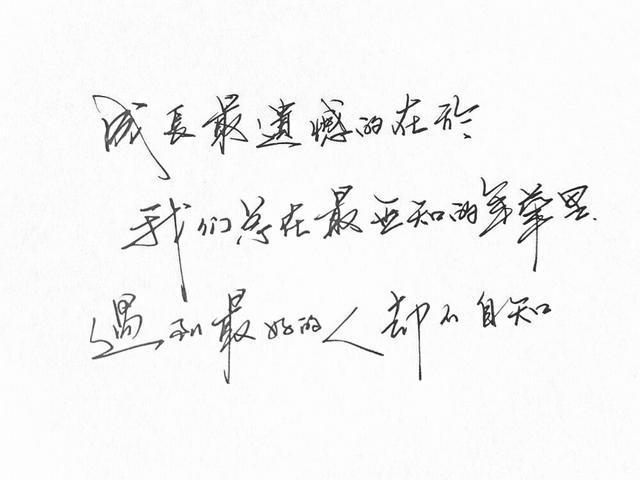 成長最遺憾的在於
我们总在最无知的年華里
遇到最好的人却不自知